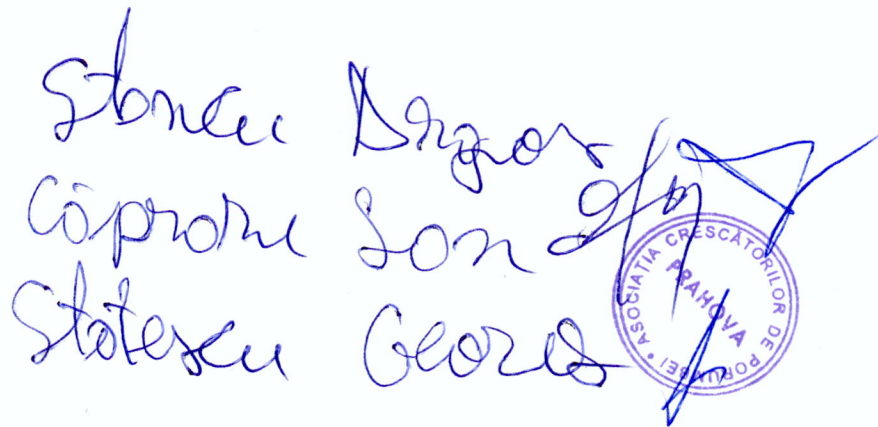 Stoncu Dragos
Căpraru Ion
Stătescu George
ASOCIAȚIA CRESCĂTORILOR DE PORUMBEI
PRAHOVA